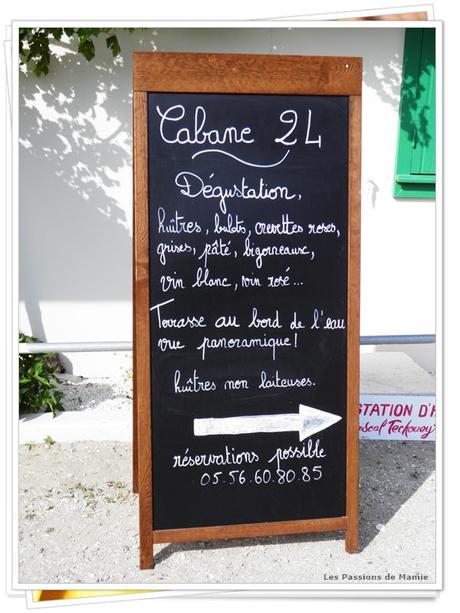 Cabane 24
Dégustation,
huîtres, bulots, crevettes roses,
grises, pâté, bigorneaux,
vin blanc, vin rosé...
Terrasse au bord de l'eau
vue panoramique!
huîtres non laiteuses.
réservations possible
05.56.60.80.85
STATION D'H
Les Passions de Mamie